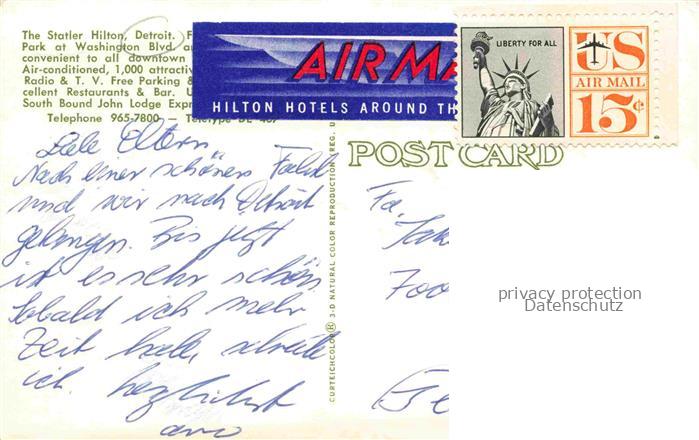 The Statler Hilton, Detroit. F
Park at Washington Blvd. an
convenient to all downtown
Air-conditioned, 1,000 attractiv
Radio & T. V. Free Parking &
cellent Restaurants & Bar. U
South Bound John Lodge Expr
Telephone 965-7800 — Teletype DE 487
AIR MA
HILTON HOTELS AROUND TH
LIBERTY FOR ALL
US
AIR MAIL
15¢
POST CARD
CURTEICHCOLOR® 3-D NATURAL COLOR REPRODUCTION (REG. U.
Liebe Eltern
Nach einer schönen Fahrt
sind wir nach Detroit
gelangen. Bis jetzt
ist es sehr schön
Sobald ich mehr
Zeit habe, schreibe
ich. herzlichst
Fa.
700
privacy protection
Datenschutz